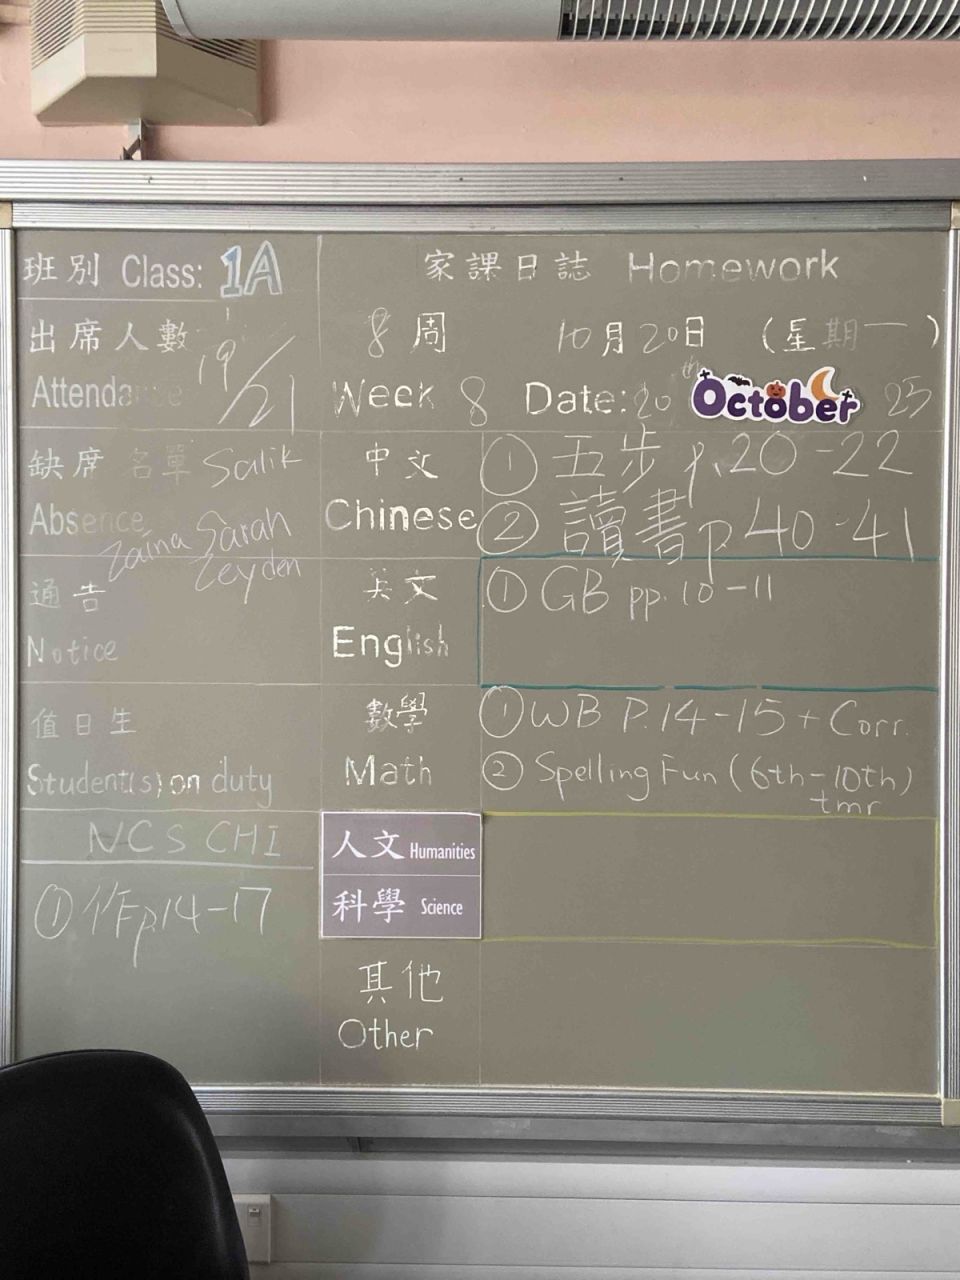 班別 Class: 1A
家課日誌 Homework
出席人數
Attendance 19/21
8 周 10月20日 (星期一)
Week 8 Date: 20th October 25
缺席名單 Salik
Absence Zaina Sarah
Zeyden
中文
Chinese
① 五步 p.20-22
② 讀書 p 40-41
通告
Notice
英文
English
① GB pp. 10-11
值日生
Student(s) on duty
數學
Math
① WB P.14-15 + Corr.
② Spelling Fun (6th-10th)
tmr
NCS CHI
① 作 p.14-17
人文 Humanities
科學 Science
其他
Other